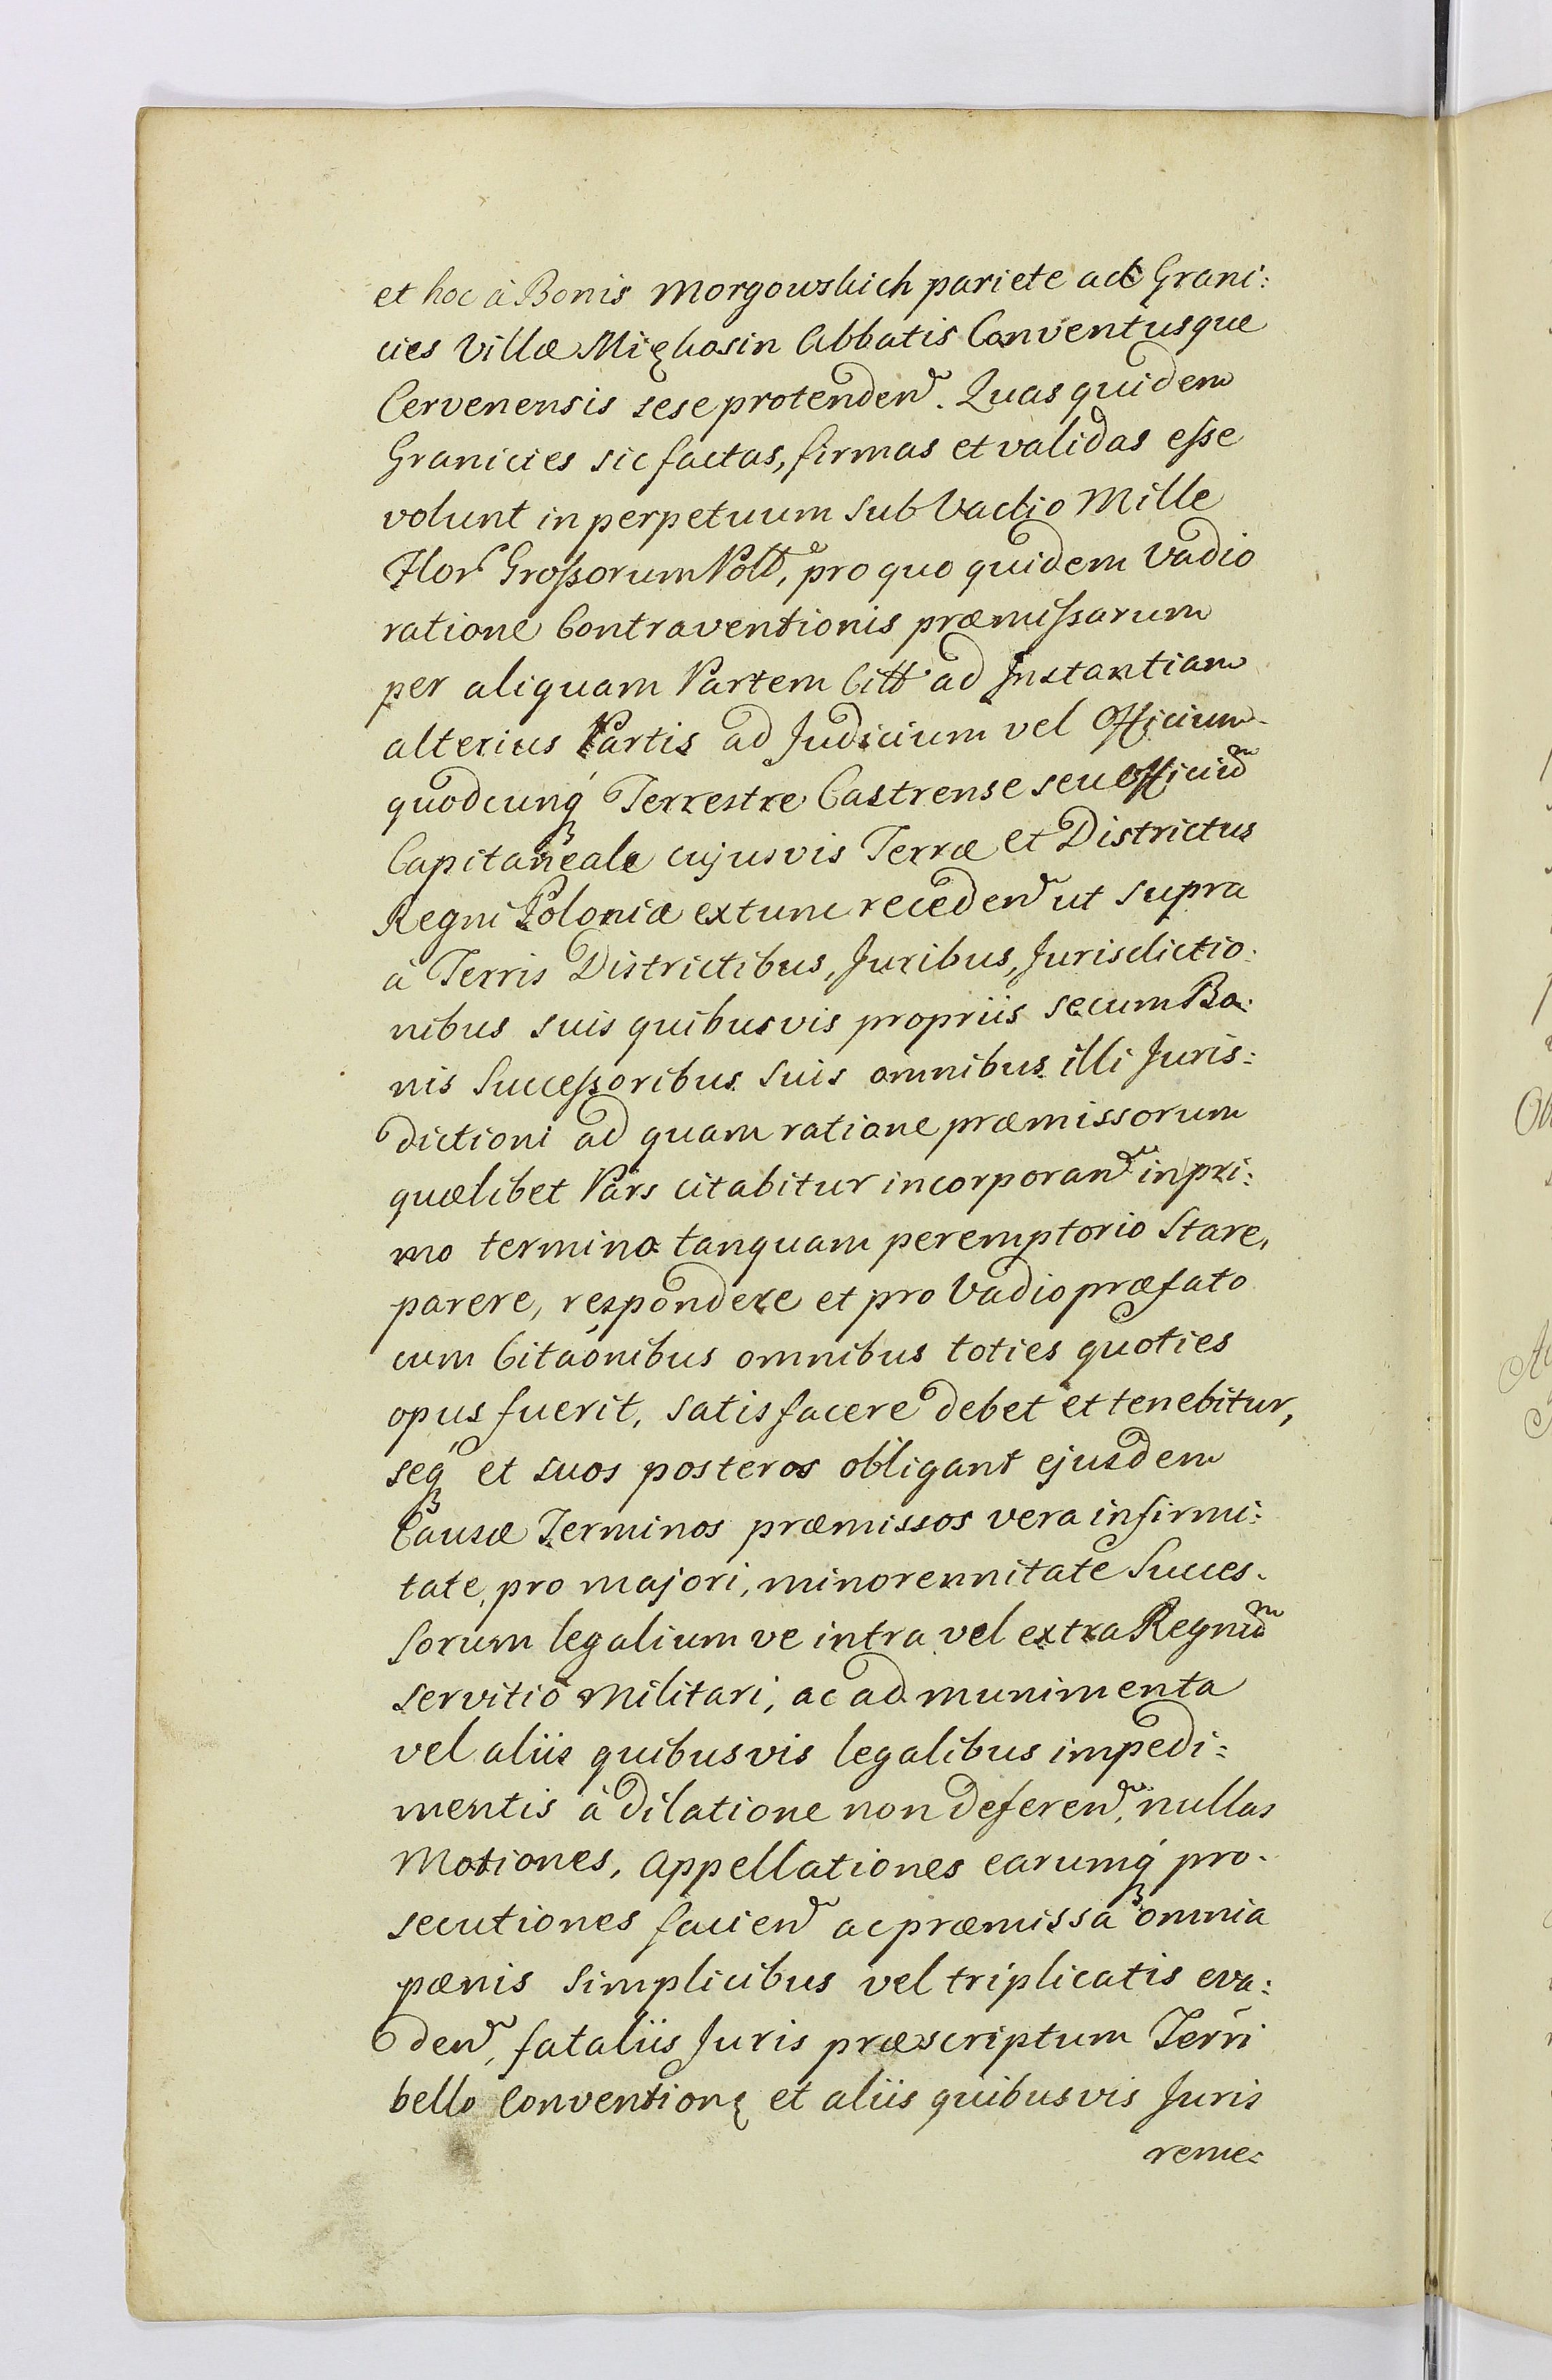 et hoc à Bonis Morgowskich pariete ad Grani:
cies Villæ Mięhosin Abbatis Conventusque
Cervenensis sese protenden̄. Quas quidem
Granicies sic factas, firmas et validas esse
volunt in perpetuum sub Vadio Mille
Flor Grossorum Poll, pro quo quidem Vadio
ratione Contraventionis præmissarum
per aliquam Partem Citt ad Instantiam
alterius Partis ad Judicium vel Officium
quodcunq́ Terrestre Castrense seu Officiū
Capitaneale cujusvis Terræ et Districtus
Regni Poloniæ extunc receden̄ ut supra
à Terris Districtibus, Juribus, Jurisdictio:
nibus suis quibusvis propriis secum Bo:
nis Successoribus suis omnibus illi Juris:
dictioni ad quam ratione præmissorum
quælibet Pars citabitur incorporan̄ in pri:
mo termino tanquam peremptorio Stare,
parere, respondere et pro Vadio præfato
cum Citáonibus omnibus toties quoties
opus fuerit, satisfacere debet et tenebitur,
seq́ et suos posteros obligant ejusdem
Causæ Terminos præmissos vera infirmi:
tate, pro majori, minorennitate Succes.
sorum legalium ve intra vel extra Regnū
servitio Militari, ac ad munimenta
vel aliis quibusvis legalibus impedi:
mentis à dilatione non deferen̄, nullas
Motiones, Appellationes earumq́ pro.
secutiones facien̄ ac præmissa omnia
pænis simplicibus vel triplicatis eva:
den̄, fataliis Juris præscriptum Terri
bello Conventionę et aliis quibusvis Juris
reme: